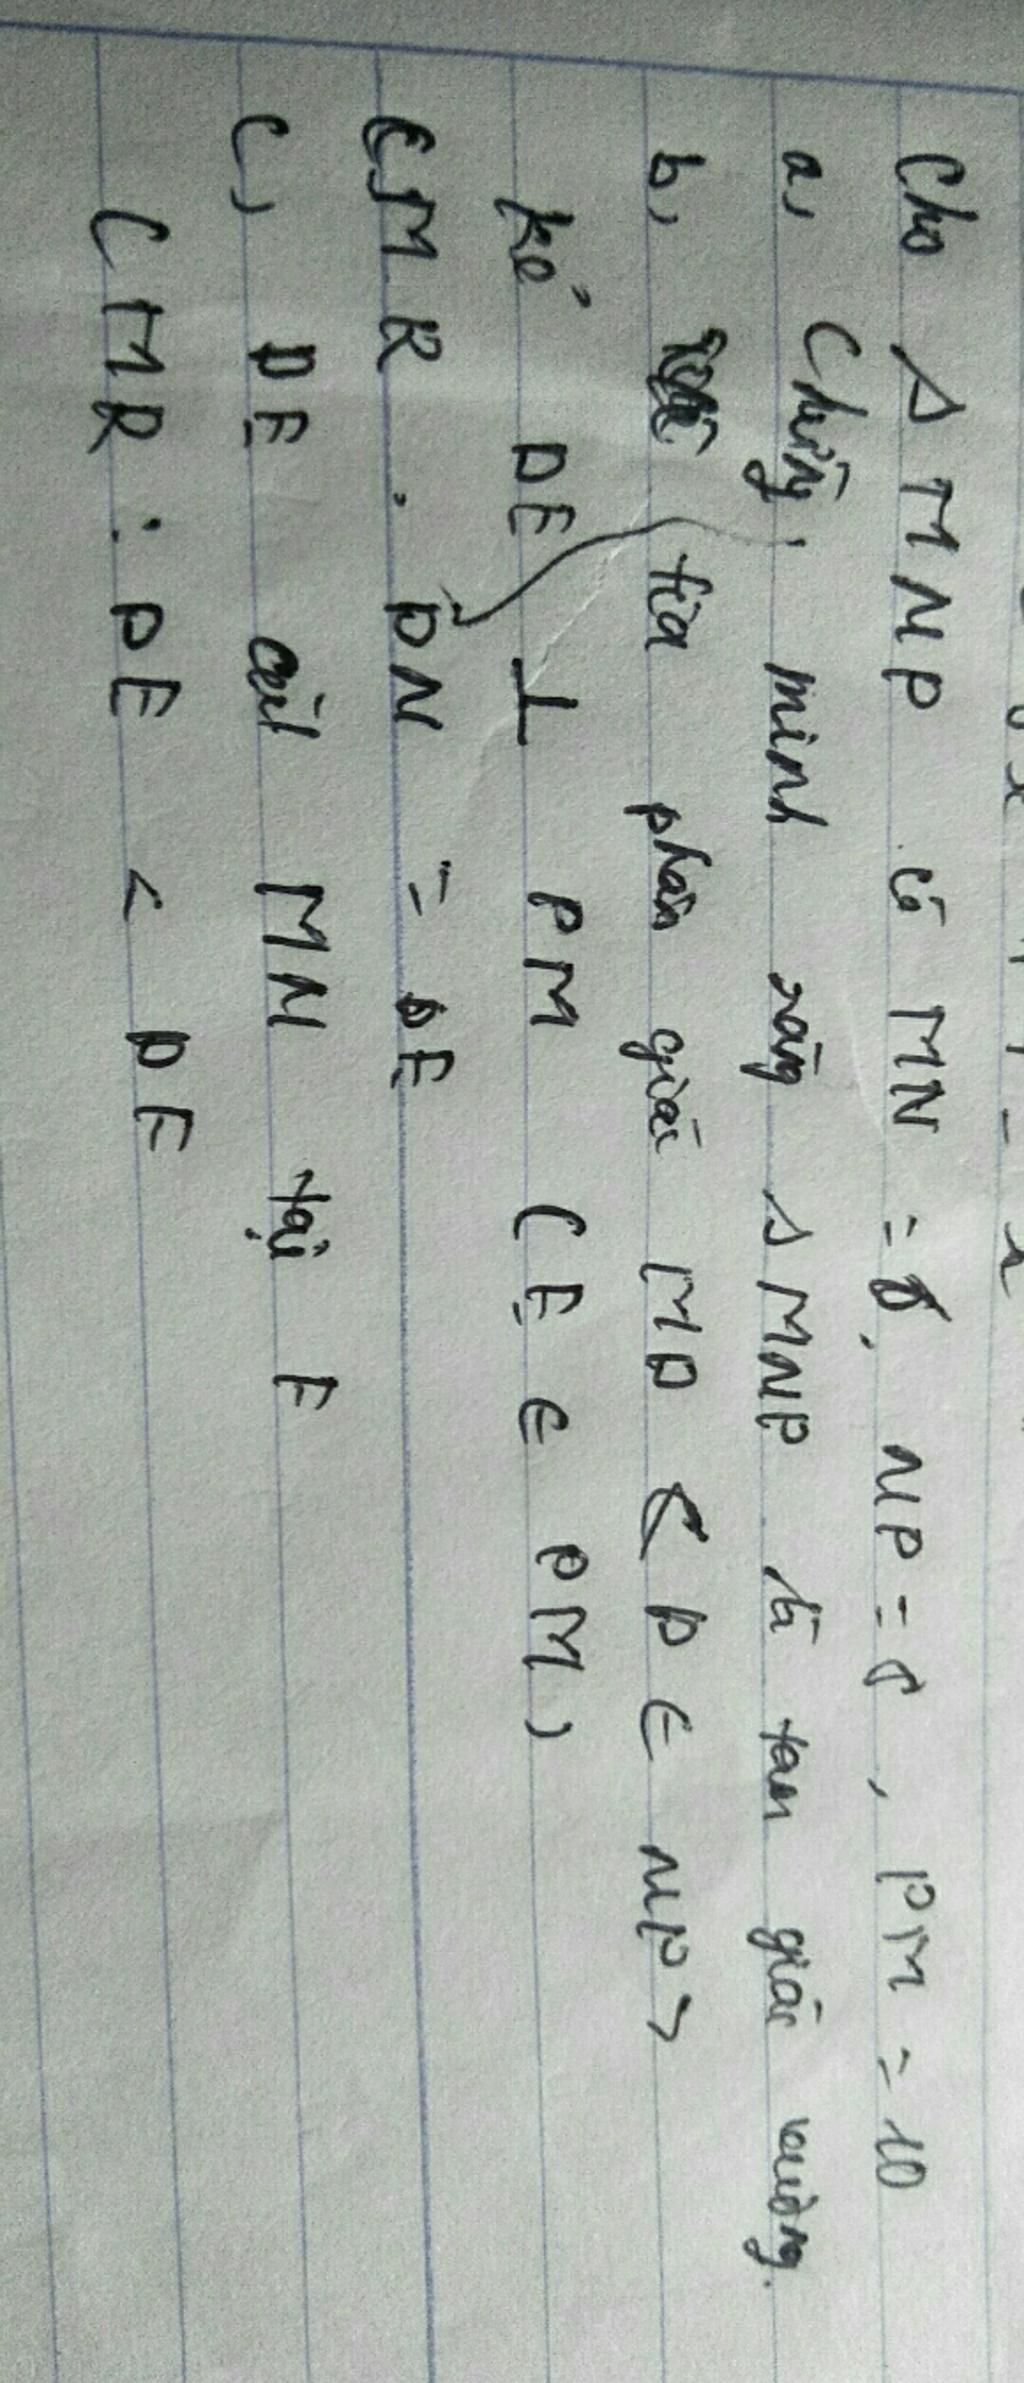 Cho Δ MNP có MN = 6, NP = 8, PM = 10
a, Chứng minh rằng Δ MNP là tam giác vuông.
b, tia phân giác MD (D ∈ NP)
kẻ DE ⊥ PM (E ∈ PM)
CMR: DN = DE
c, DE cắt MN tại F
CMR: DE < DF